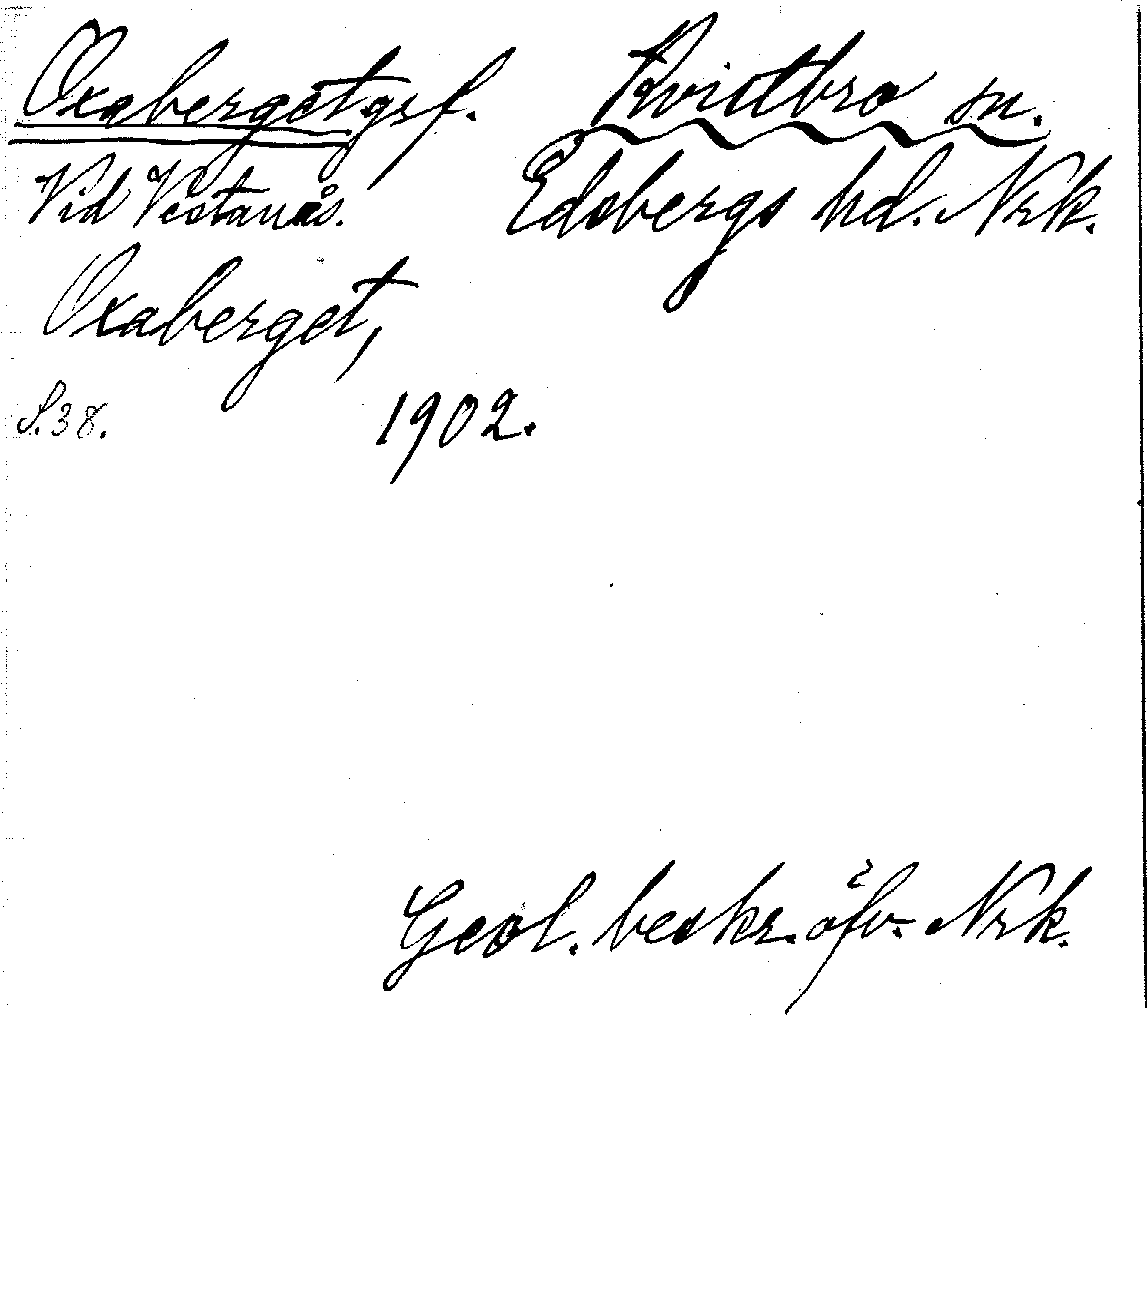 Oxaberget grf. Kvistbro sn.
Vid Vestanås. Edsbergs hd. Nrk.
Oxaberget,
S. 38. 1902.
Geol. beskr. öfv. Nrk.